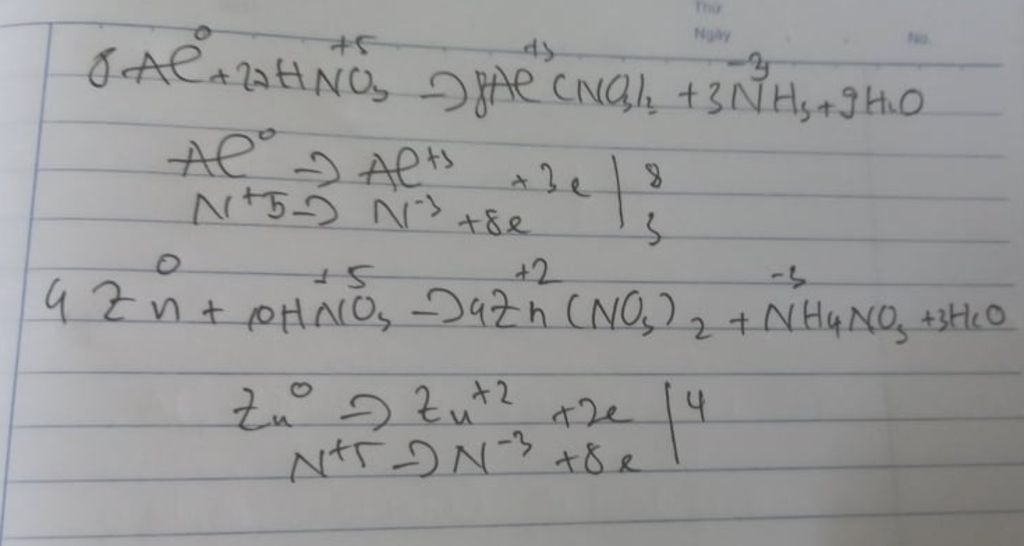 Thứ
Ngày No.
8Al⁰ + 27HN⁺⁵O₃ → 8Al⁺³(NO₃)₃ + 3N⁻³H₃ + 9H₂O
Al⁰ → Al⁺³ + 3e | 8
N⁺⁵ → N⁻³ + 8e | 3
4Zn⁰ + 10HN⁺⁵O₃ → 4Zn⁺²(NO₃)₂ + N⁻³H₄NO₃ + 3H₂O
Zn⁰ → Zn⁺² + 2e | 4
N⁺⁵ → N⁻³ + 8e |